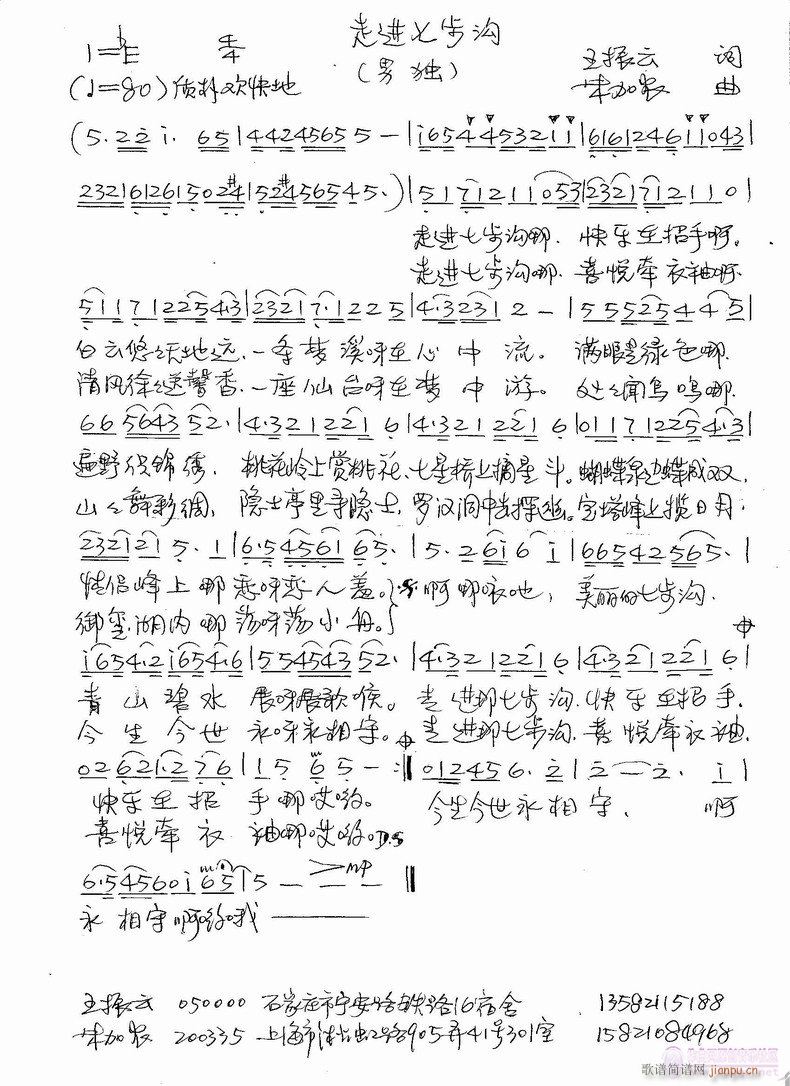 走进七步沟
1=♭E 4/4 (男独) 王振云 词
(♩=80) 质朴欢快地 荣加农 曲
(5. 2 2 i. 6 5 | 4 4 2 4 5 6 5 5 - | i 6 5 4 4 5 3 2 1 1 | 6 1 6 1 2 4 6 1 1 0 4 3 |
2 3 2 1 6 1 2 6 1 5 0 2 #4 | 5 2 #4 5 6 5 4 5. ) | 5 1 7 1 2 1 1 0 5 3 | 2 3 2 1 7 1 2 1 1 0 |
走进七步沟哪 快乐在招手啊。
走进七步沟哪 喜悦牵衣袖啊
5 1 1 7 1 2 2 5 4 3 | 2 3 2 1 7. 1 2 2 5 | 4. 3 2 3 1 2 - | 5 5 5 2 5 4 4 5 |
白云悠悠天地远 一条梦溪呀在心中流。 满眼是绿色哪
清风徐徐送馨香 一座仙台呀在梦中游。 处处闻鸟鸣哪
6 6 5 6 4 3 5 2. | 4. 3 2 1 2 2 1 6 | 4. 3 2 1 2 2 1 6 | 0 1 1 7 1 2 2 5 4. 3 |
遍野织锦绣 桃花岭上赏桃花 七星桥上摘星斗 蝴蝶泉边蝶成双
山山舞彩绸 隐士亭里寻隐士 罗汉洞中去探幽 宝塔峰上揽日月
2 3 2 1 2 1 5. 1 | 6. 5 4 5 6 1 6 5. | 5. 2 6 i 6 i | 6 6 5 4 2 5 6 5. |
情侣峰上哪恋呀恋人羞。 啊哪咳地, 美丽的七步沟
御玺湖内哪荡呀荡小舟。
i 6 5 4. 2 i 6 5 4. 6 | 5 5 4 5 4 3 5 2. | 4. 3 2 1 2 2 1 6 | 4. 3 2 1 2 2 1 6 |
青山碧水 展呀展歌喉。 走进那七步沟 快乐在招手
今生今世 永呀永相守。 走进那七步沟 喜悦牵衣袖
0 2 6 2 1. 2 7 6 | 1 5 6 5 - :‖ 0 1 2 4 5 6. 2 | 2 — 2. i |
快乐在招手哪哎哟。 今生今世永相守, 啊
喜悦牵衣袖哪哎哟。D.S
6. 5 4 5 6 0 i 6 5 | 5 - - - ‖ mp
永相守啊哟哦
王振云 050000 石家庄市宁安路铁路16宿舍 13582115188
荣加农 200335 上海市 905弄41号301室 15821084968
歌谱简谱网 jianpu.cn